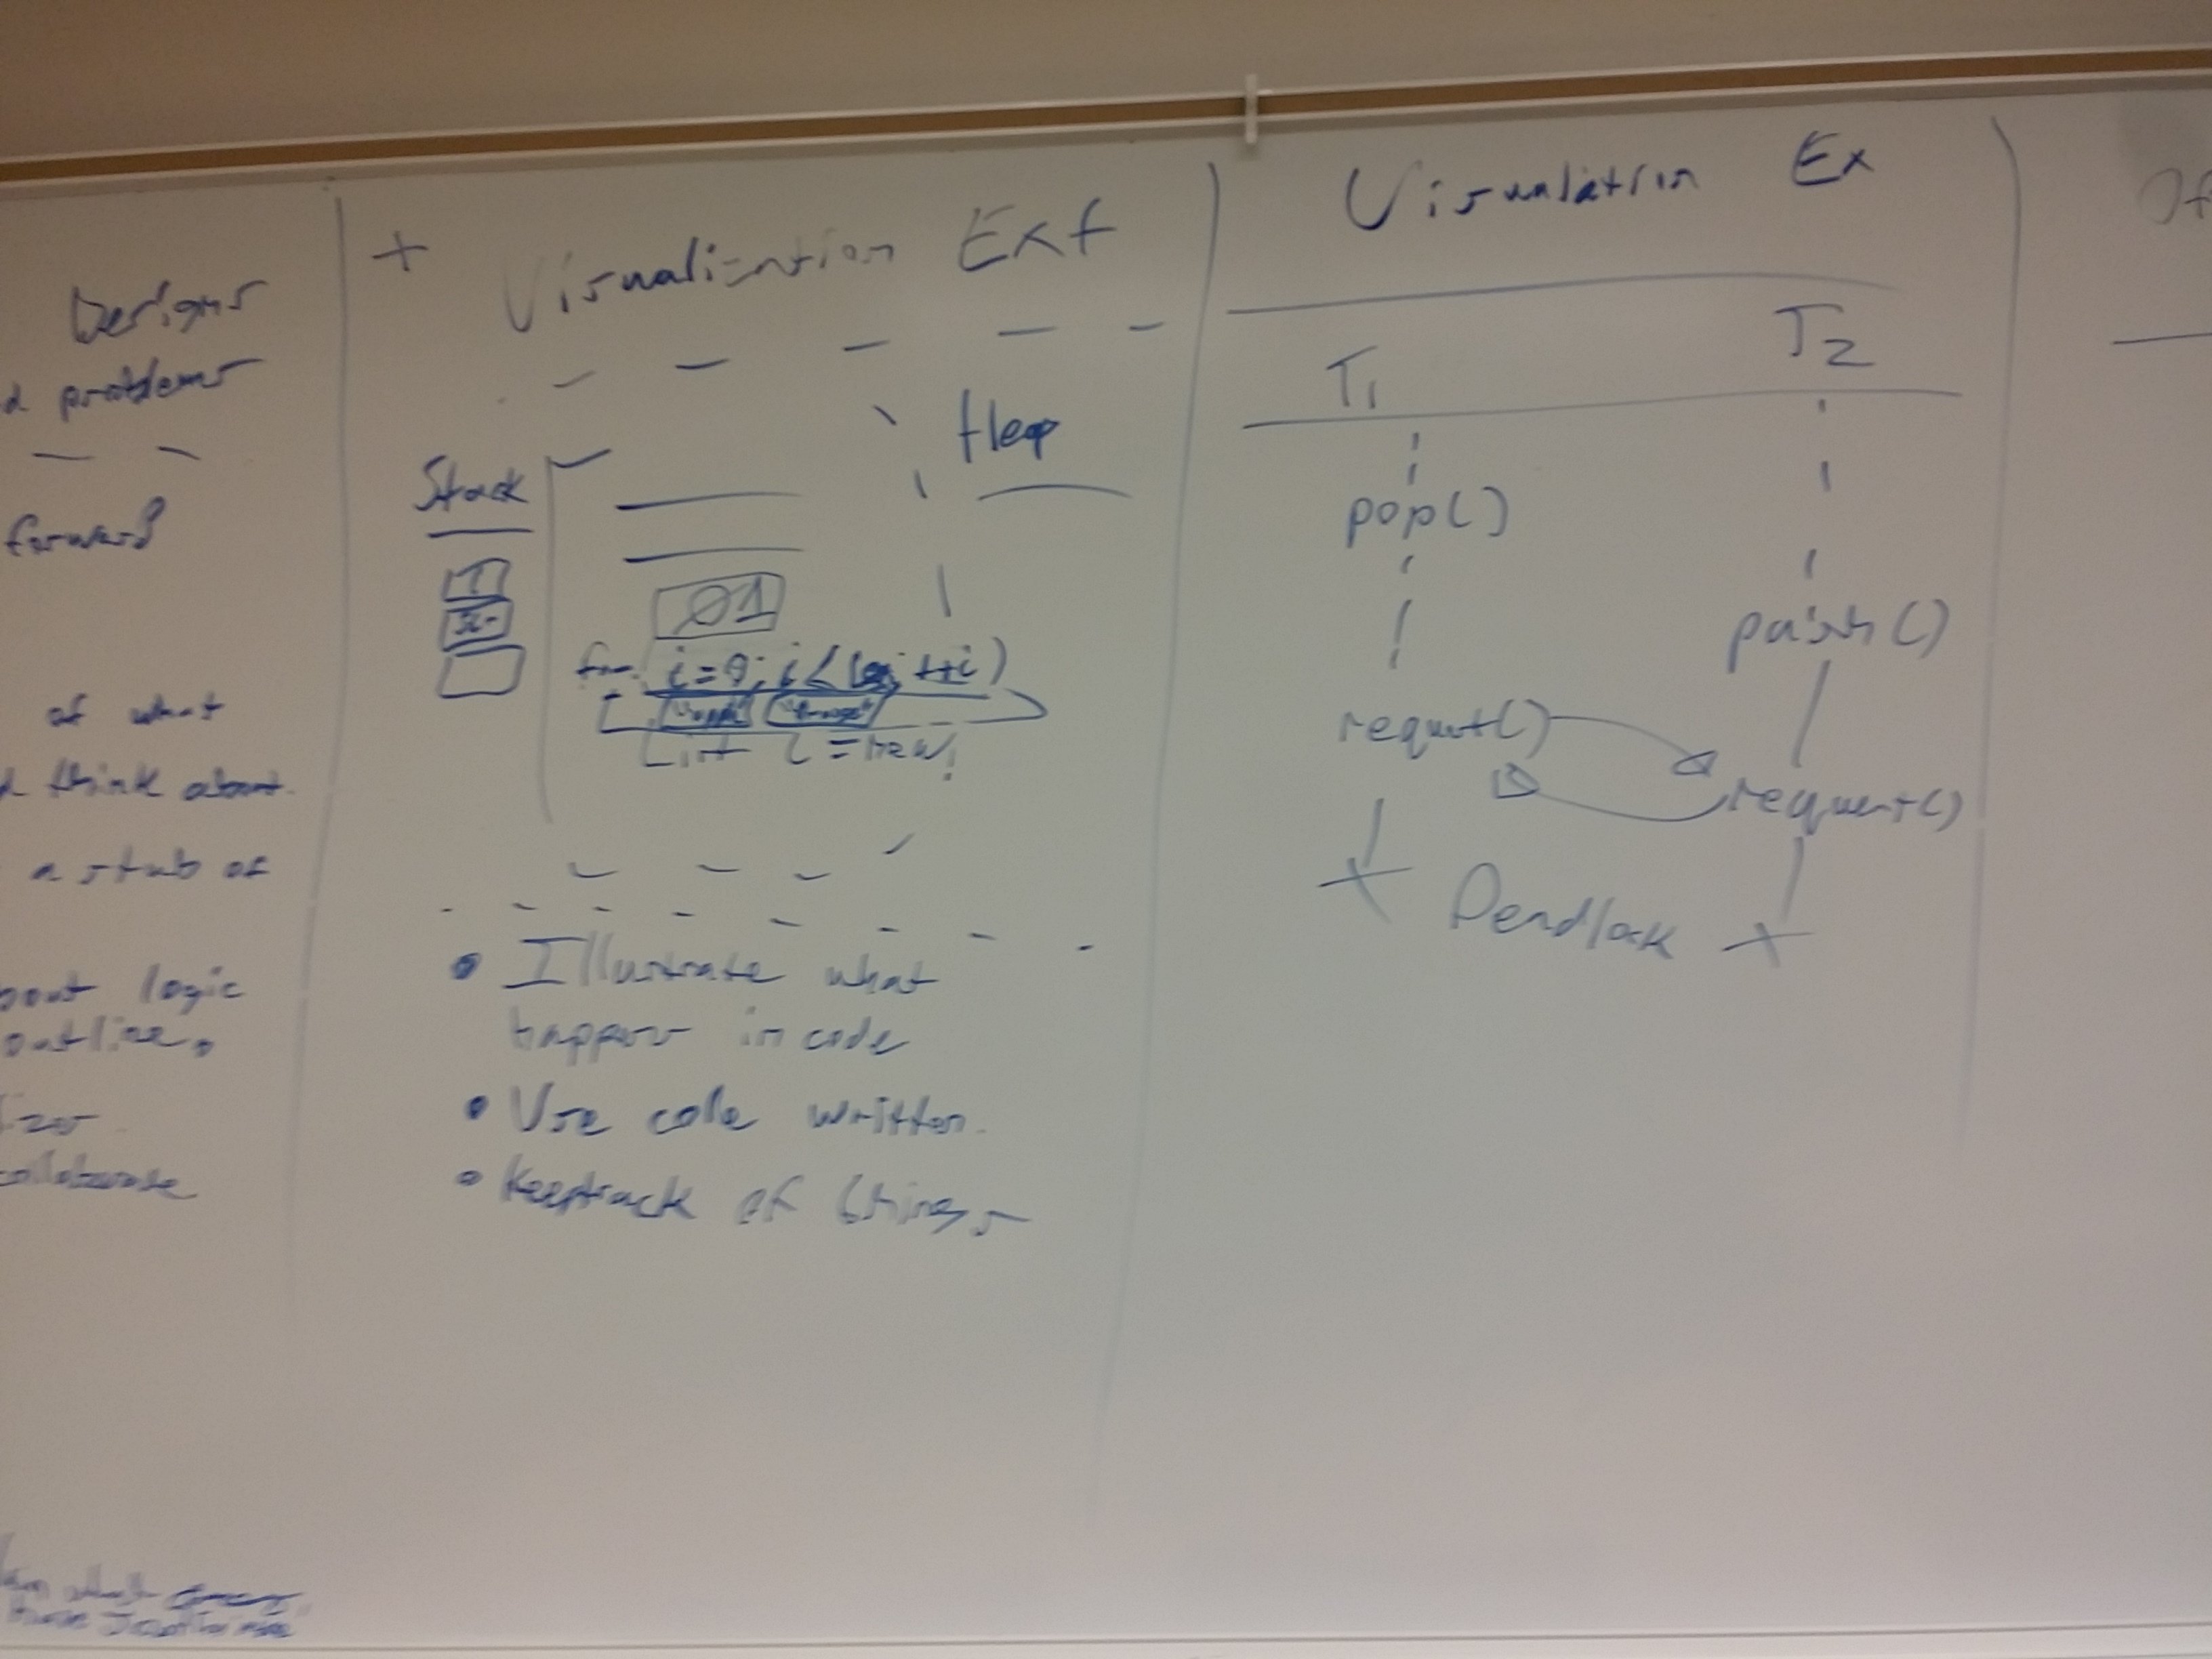 Designs
problems
forward
of what
think about.
a stub of
logic
outline.
collaborate
+ Visualization Ex
Stack
Heap
01
for i=0; i<len; ++i)
List l = new
• Illustrate what
happens in code
• Use code written.
• Keep track of things
Visualization Ex
T1 T2
pop()
push()
request()
request()
Deadlock